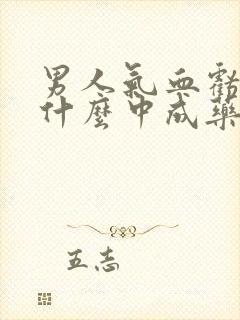 男人氣血虧
什麼中成藥
五志